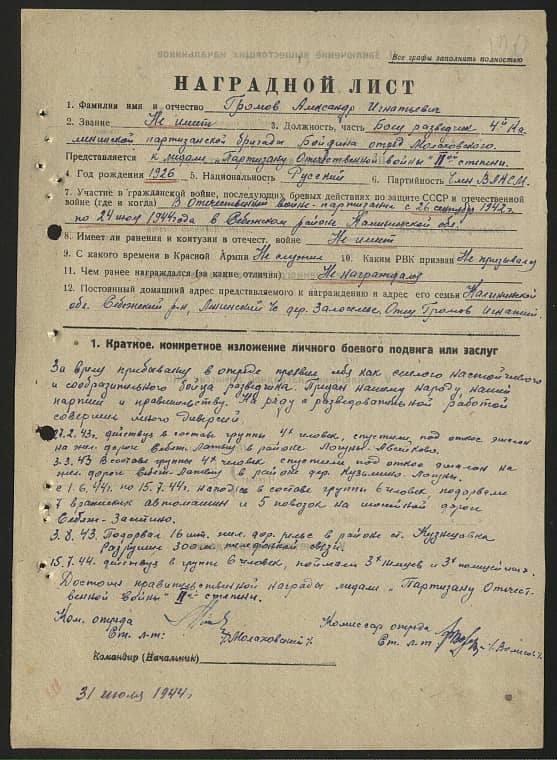 Все графы заполнить полностью
НАГРАДНОЙ ЛИСТ
1. Фамилия имя и отчество Громов Александр Игнатьевич
2. Звание Не имеет 3. Должность, часть Боец разведчик 4й Ка
лининской партизанской бригады Бойдина отряд Молаховского.
Представляется к медали "Партизану Отечественной войны" IIой степени.
4 Год рождения 1926 5. Национальность Русский 6. Партийность Член ВЛКСМ.
7. Участие в гражданской войне, последующих боевых действиях по защите СССР и отечественной
войне (где и когда) В Отечественной войне-партизаном с 26 сентября 1942г
по 24 июл 1944года в Себежском районе, Калининской обл.
8. Имеет ли ранения и контузии в отечест. войне Не имеет
9. С какого времени в Красной Армии Не служил 10. Каким РВК призван Не призывался
11. Чем ранее награждался (за какие отличия) Не награждался
12. Постоянный домашний адрес представляемого к награждению и адрес его семьи Калининской
обл. Себежский р-н, Лининский с/с дер. Залоселье. Отец Громов Игнатий.
1. Краткое, конкретное изложение личного боевого подвига или заслуг
За время пребывания в отряде проявил себя как смелого настойчивого
и сообразительного бойца разведчика. Предан нашему народу нашей
партии и правительству. На ряду с разведовательной работой
совершил много диверсий.
27.2.43г. действуя в составе группы 4х человек, спустили под откос эшелон
на жел. дороге Себеж-Латвия в районе
3.3.43 В составе группы 4х человек спустили под откос эшелон на
жел. дороге Себеж-Латвия в районе дер. Кузьмино-
с 1.6.44г. по 15.7.44г. находясь в составе группы 6 человек подорвали
7 вражеских автомашин и 5 повозок на шоссейной дороге
Себеж-Заситино.
3.8.43. Подорвал 16 шт. жел. дор. рельс в районе ст. Кузнецовка
Разрушил 300м телефонной связи.
15.7.44. действуя в групе 6 человек, поймали 3х немцев и 3х полицейских.
Достоин правительственной награды медали "Партизану Отечест-
венной войны" IIой степени.
Ком. отряда Комиссар отряда
Ст. л-т: /Молаховский/. Ст. л-т
Командир (Начальник)
31 июля 1944г.